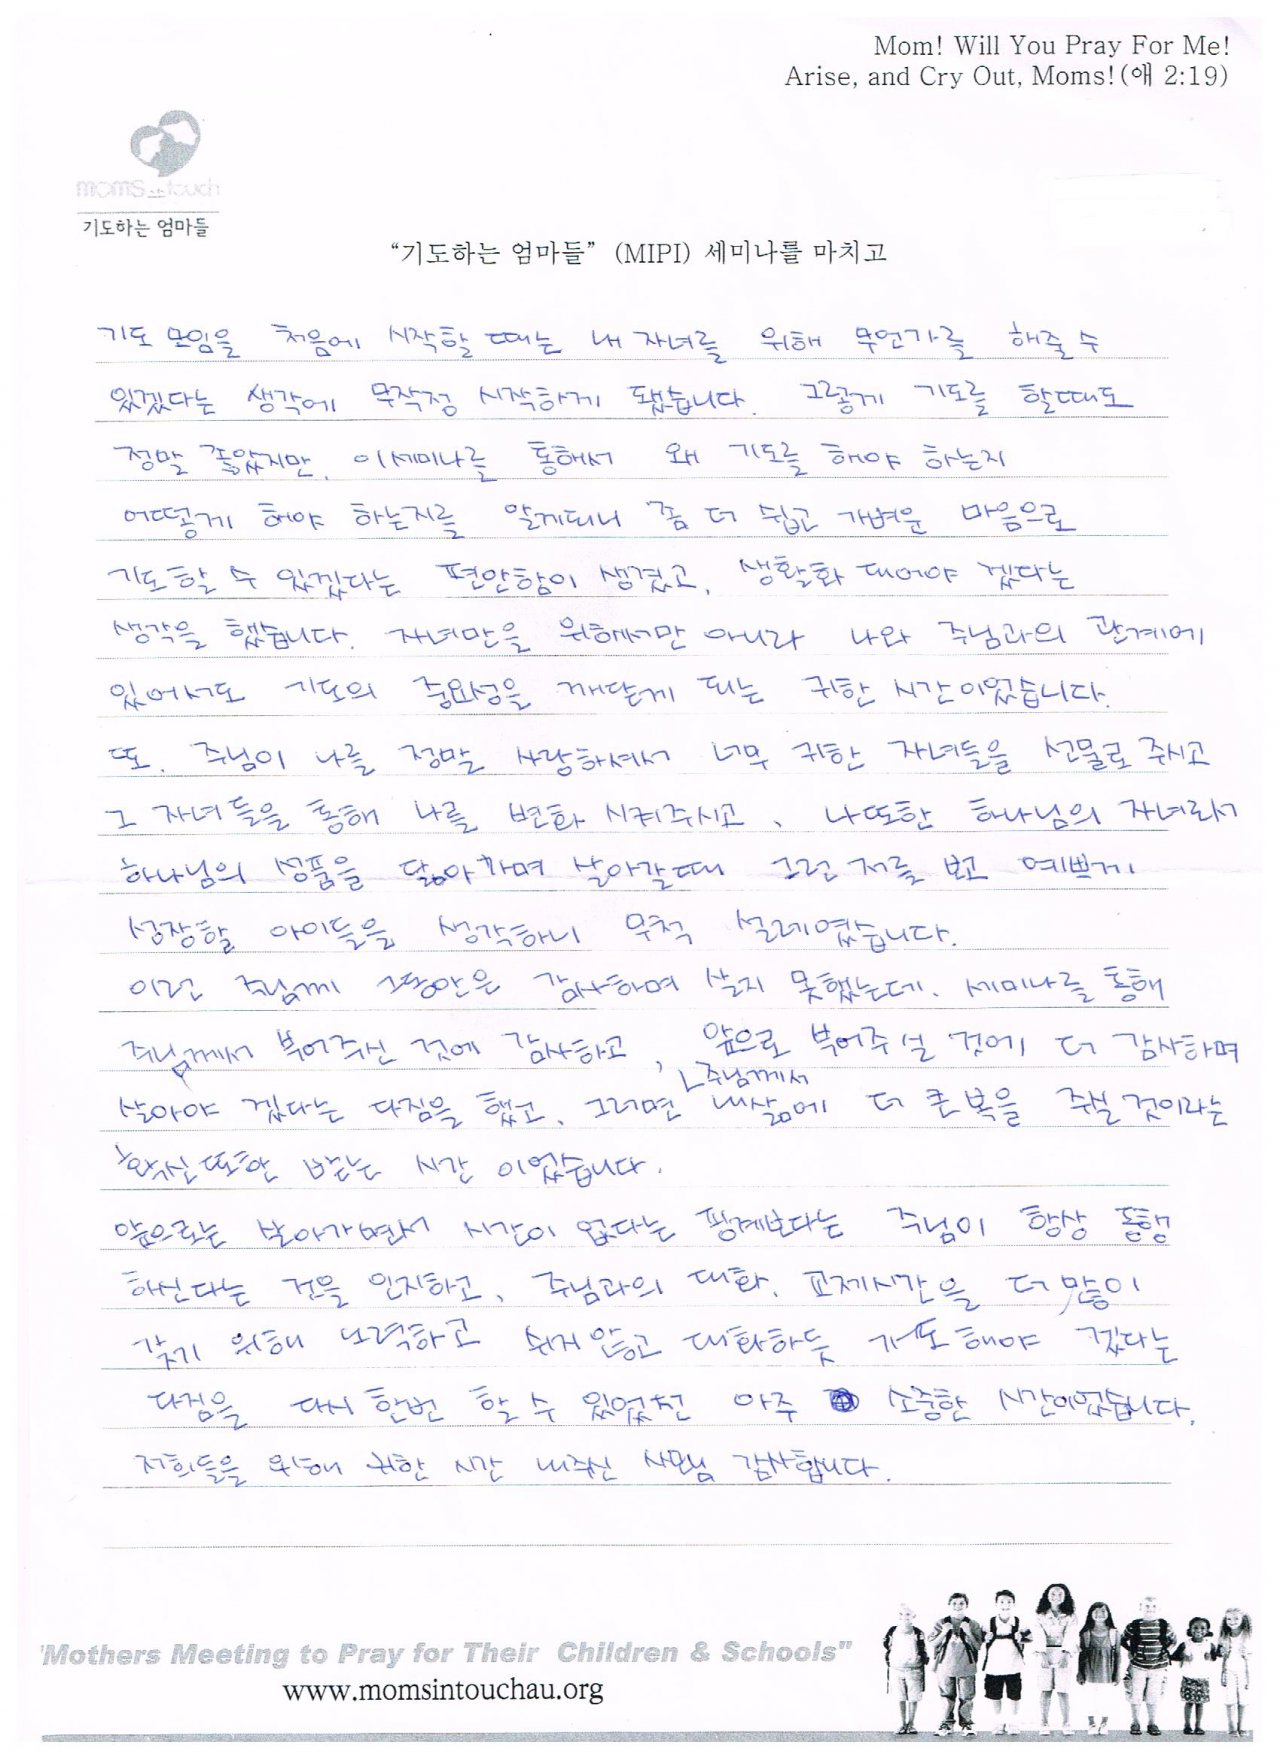 Mom! Will You Pray For Me!
Arise, and Cry Out, Moms!(애 2:19)
moms in touch
기도하는 엄마들
“기도하는 엄마들” (MIPI) 세미나를 마치고
기도 모임을 처음에 시작할 때는 내 자녀를 위해 무언가를 해줄 수
있겠다는 생각에 무작정 시작하게 됐습니다. 그렇게 기도를 할때도
정말 좋았지만, 이세미나를 통해서 왜 기도를 해야 하는지
어떻게 해야 하는지를 알게되니 좀 더 쉽고 가벼운 마음으로
기도할 수 있겠다는 편안함이 생겼고, 생활화 되어야 겠다는
생각을 했습니다. 자녀만을 위해서만 아니라 나와 주님과의 관계에
있어서도 기도의 중요성을 깨닫게 되는 귀한 시간이었습니다.
또, 주님이 나를 정말 사랑하셔서 너무 귀한 자녀들을 선물로 주시고
그 자녀들을 통해 나를 변화 시켜주시고, 나또한 하나님의 자녀로서
하나님의 성품을 닮아가며 살아갈때 그런 저를 보고 예쁘게
성장할 아이들을 생각하니 무척 설레였습니다.
이런 주님께 그동안은 감사하며 살지 못했는데, 세미나를 통해
주님께서 부어주신 것에 감사하고, 앞으로 부어주실 것에 더 감사하며
주님께서
살아야 겠다는 다짐을 했고, 그러면 내삶에 더 큰 복을 주실 것이라는
확신 또한 받는 시간 이었습니다.
앞으로는 살아가면서 시간이 없다는 핑계보다는 주님이 항상 동행
하신다는 것을 인지하고, 주님과의 대화, 교제시간을 더 많이
갖기 위해 노력하고 쉬지 않고 대화하듯 기도해야 겠다는
다짐을 다시 한번 할 수 있었던 아주 소중한 시간이었습니다.
저희들을 위해 귀한 시간 내주신 사모님 감사합니다.
"Mothers Meeting to Pray for Their Children & Schools"
www.momsintouchau.org